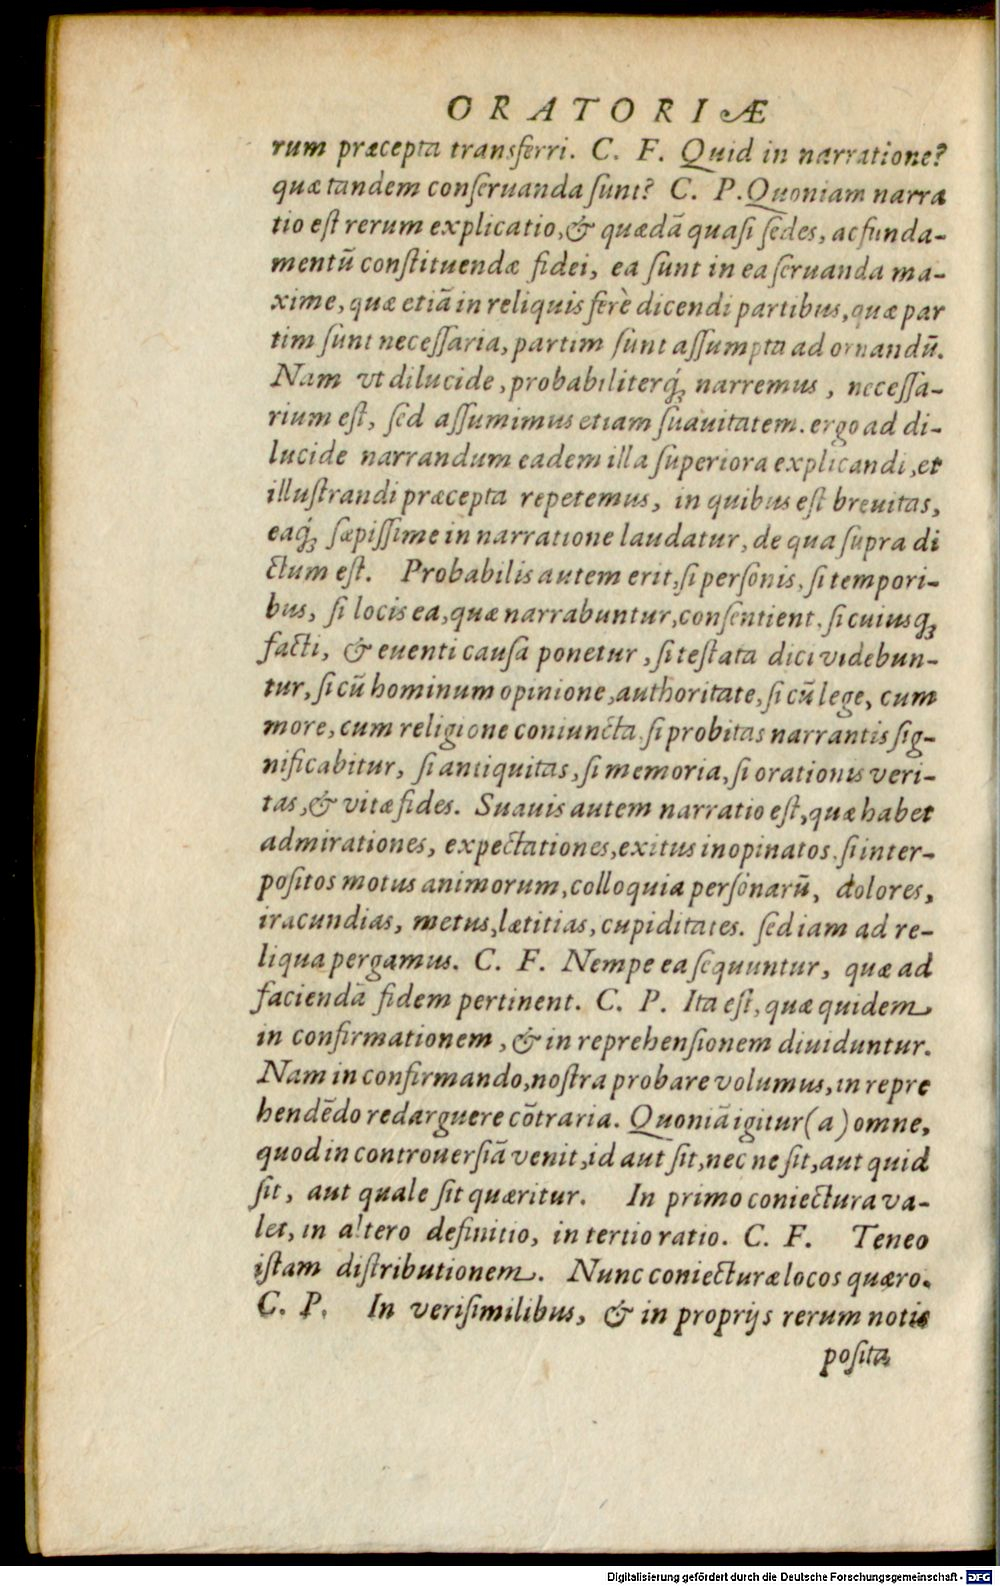 ORATORIÆ
rum præcepta transferri. C. F. Quid in narratione?
quæ tandem conſeruanda ſunt? C. P. Quoniam narra
tio eſt rerum explicatio, & quædã quaſi ſedes, ac funda-
mentũ conſtituendæ fidei, ea ſunt in ea ſeruanda ma-
xime, quæ etiã in reliquis ferè dicendi partibus, quæ par
tim ſunt neceſſaria, partim ſunt aſſumpta ad ornandũ.
Nam vt dilucide, probabiliterq́; narremus, neceſſa-
rium eſt, ſed aſſumimus etiam ſuauitatem. ergo ad di-
lucide narrandum eadem illa ſuperiora explicandi, et
illuſtrandi præcepta repetemus, in quibus eſt breuitas,
eaq́; ſæpiſſime in narratione laudatur, de qua ſupra di
ctum eſt. Probabilis autem erit, ſi perſonis, ſi tempori-
bus, ſi locis ea, quæ narrabuntur, conſentient. ſi cuiusq;
facti, & euenti cauſa ponetur, ſi teſtata dici videbun-
tur, ſi cũ hominum opinione, authoritate, ſi cũ lege, cum
more, cum religione coniuncta. ſi probitas narrantis ſig-
nificabitur, ſi antiquitas, ſi memoria, ſi orationis veri-
tas, & vitæ fides. Suauis autem narratio eſt, quæ habet
admirationes, expectationes, exitus inopinatos. ſi inter-
poſitos motus animorum, colloquia perſonarũ, dolores,
iracundias, metus, lætitias, cupiditates. ſed iam ad re-
liqua pergamus. C. F. Nempe ea ſequuntur, quæ ad
faciendã fidem pertinent. C. P. Ita eſt, quæ quidem
in confirmationem, & in reprehenſionem diuiduntur.
Nam in confirmando, noſtra probare volumus, in repre
hendẽdo redarguere cõtraria. Quoniã igitur (a) omne,
quod in controuerſiã venit, id aut ſit, nec ne ſit, aut quid
ſit, aut quale ſit quæritur. In primo coniectura va-
let, in altero definitio, in tertio ratio. C. F. Teneo
iſtam diſtributionem. Nunc coniecturæ locos quæro.
C. P. In veriſimilibus, & in proprijs rerum notis
poſita
Digitalisierung gefördert durch die Deutsche Forschungsgemeinschaft - DFG